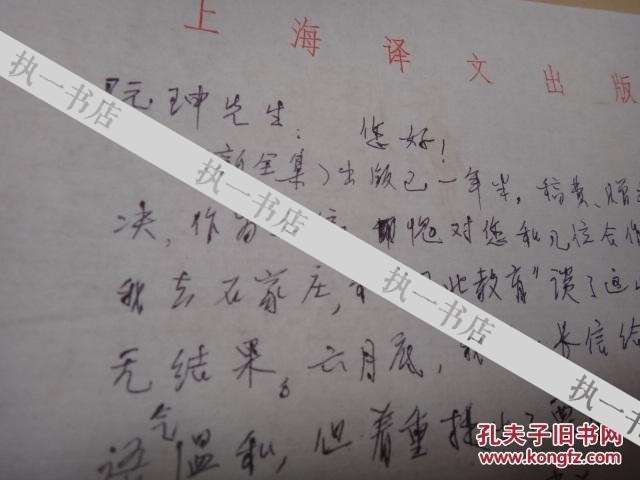 上海译文出版
珅先生：您好！
全集》出版已一年半，稿费、赠
决，作为 愧对您和几位合作
我去石家庄， 教育"谈了
无结果。六月底，我 来信给
语气温和，但着重提
执一书店
执一书店
执一书店
执一书店
执一书店
孔夫子旧书网
www.kongfz.com